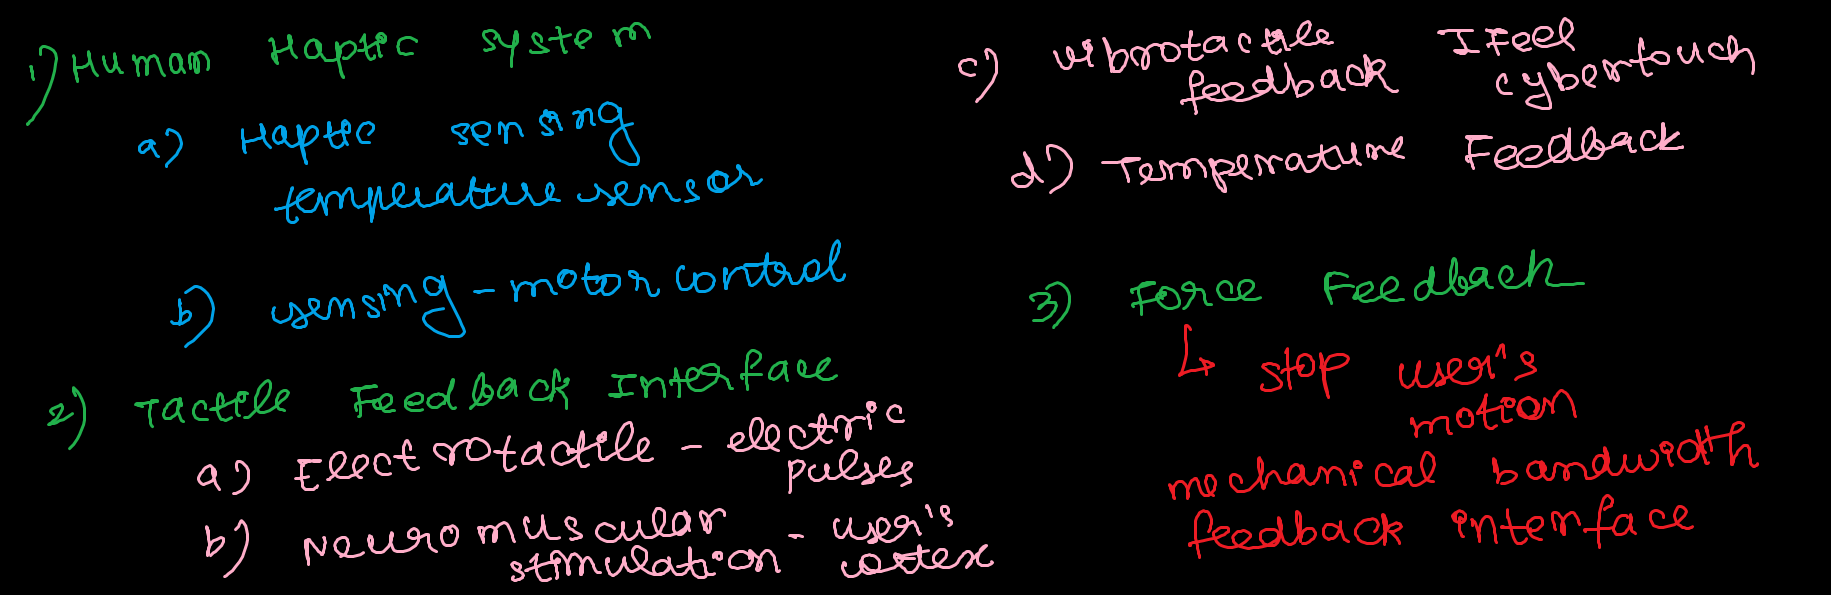 1) Human Haptic system
a) Haptic sensing
temperature sensor
b) sensing - motor control
2) Tactile Feedback Interface
a) Electrotactile - electric
pulses
b) Neuromuscular - user's
stimulation cortex
c) vibrotactile IFeel
feedback cybertouch
d) Temperature Feedback
3) Force Feedback
↳ stop user's
motion
mechanical bandwidth
feedback interface